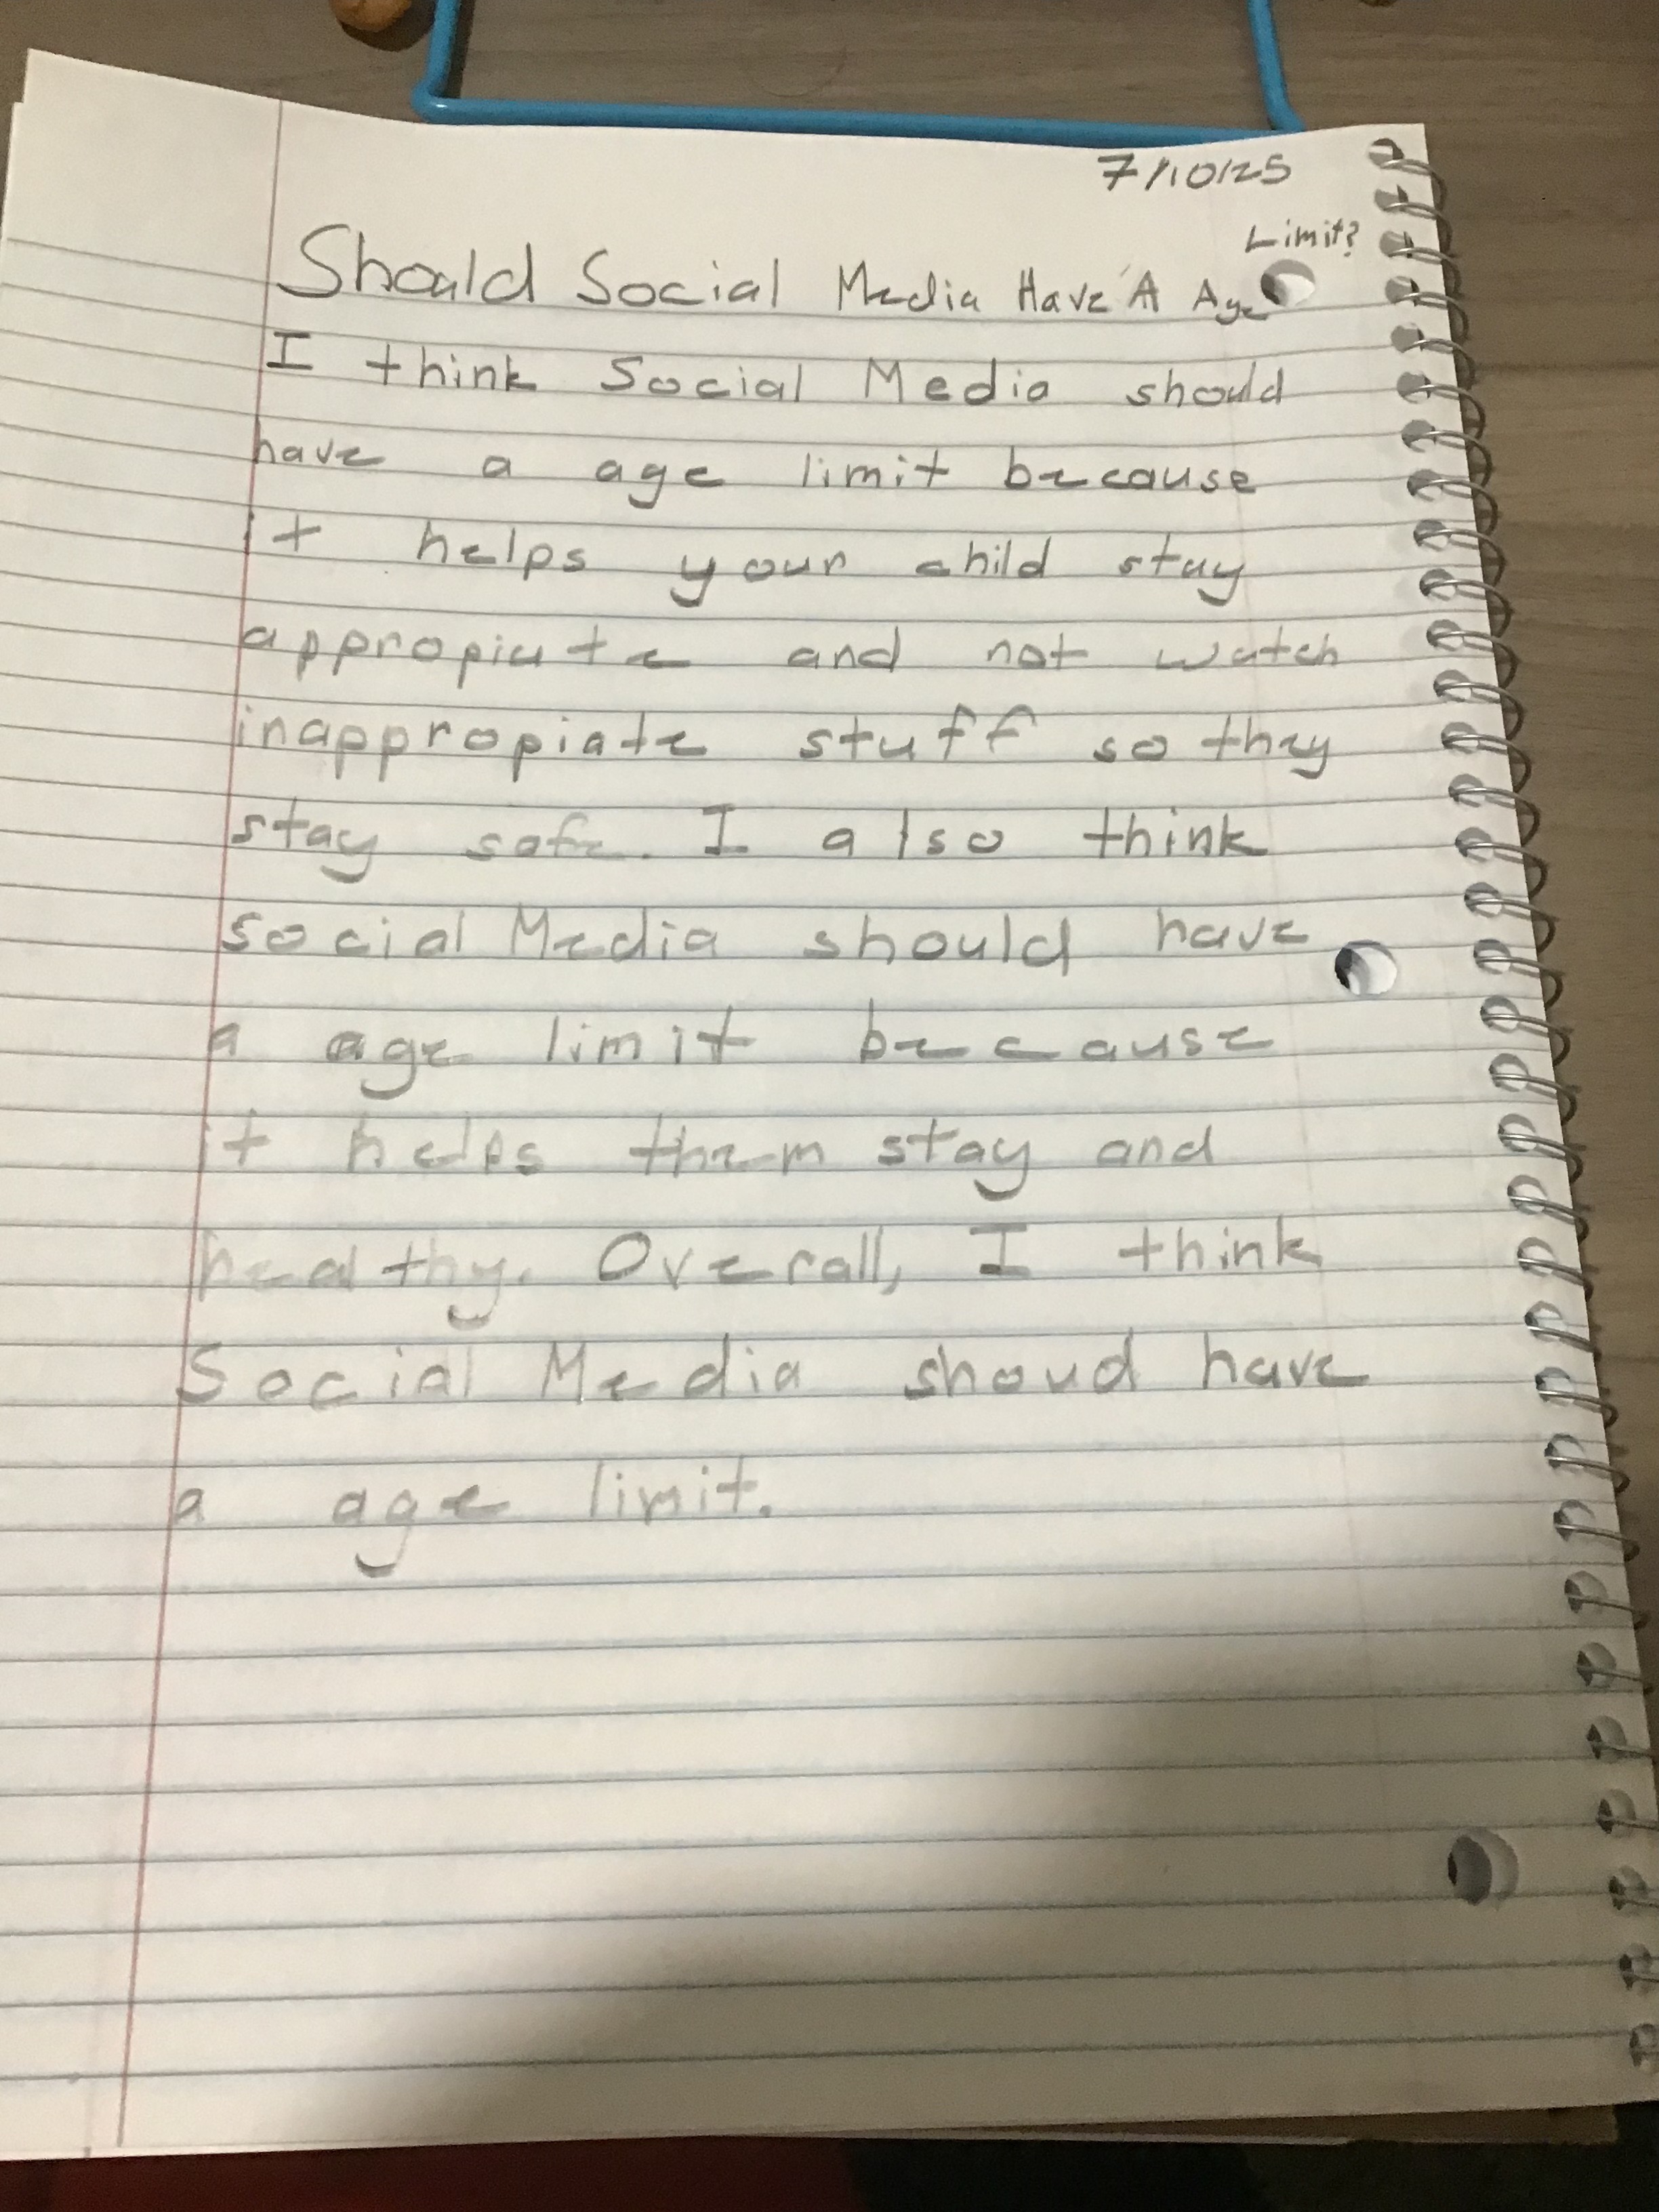 7/10/25
Limit?
Should Social Media Have A Age
I think Social Media should
have a age limit because
it helps your child stay
appropiate and not watch
inappropiate stuff so they
stay safe. I also think
social Media should have
a age limit because
it helps them stay and
healthy. Overall, I think
Social Media shoud have
a age limit.